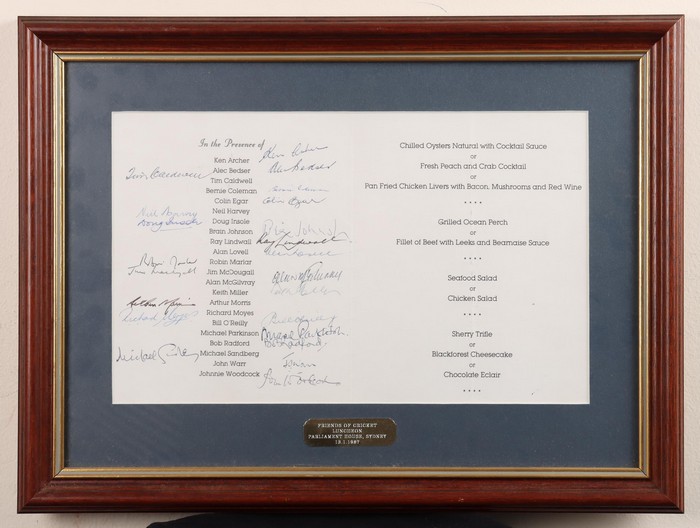 In the Presence of
Ken Archer
Alec Bedser
Tim Caldwell
Bernie Coleman
Colin Egar
Neil Harvey
Doug Insole
Brain Johnson
Ray Lindwall
Alan Lovell
Robin Marlar
Jim McDougall
Alan McGilvray
Keith Miller
Arthur Morris
Richard Moyes
Bill O'Reilly
Michael Parkinson
Bob Radford
Michael Sandberg
John Warr
Johnnie Woodcock
Ken Archer
Alec Bedser
Tim Caldwell
Colin Egar
Neil Harvey
Doug Insole
Brian Johnston
Ray Lindwall
Chilled Oysters Natural with Cocktail Sauce
or
Fresh Peach and Crab Cocktail
or
Pan Fried Chicken Livers with Bacon, Mushrooms and Red Wine
* * * *
Grilled Ocean Perch
or
Fillet of Beef with Leeks and Bearnaise Sauce
* * * *
Seafood Salad
or
Chicken Salad
* * * *
Sherry Trifle
or
Blackforest Cheesecake
or
Chocolate Eclair
* * * *
FRIENDS OF CRICKET
LUNCHEON
PARLIAMENT HOUSE, SYDNEY
13.1.1987